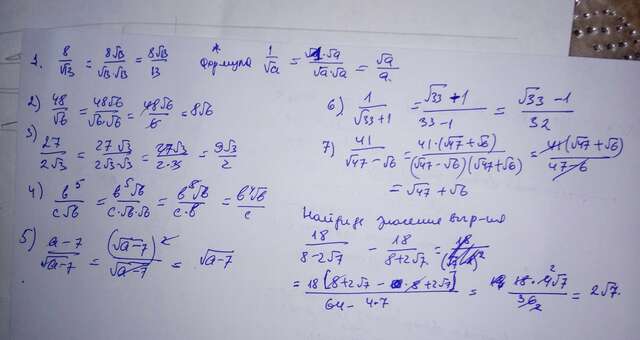 1. 8/√13 = 8√13/(√13·√13) = 8√13/13
* Формула 1/√a = √a/(√a·√a) = √a/a
2) 48/√6 = 48√6/(√6·√6) = 48√6/6 = 8√6
3) 27/(2√3) = 27√3/(2√3·√3) = 27√3/(2·3) = 9√3/2
4) b⁵/(c√b) = b⁵√b/(c·√b·√b) = b⁵√b/(c·b) = b⁴√b/c
5) (a-7)/√(a-7) = (√(a-7))²/√(a-7) = √(a-7)
6) 1/(√33+1) = (√33-1)/(33-1) = (√33-1)/32
7) 41/(√47-√6) = 41·(√47+√6)/((√47-√6)(√47+√6)) = 41(√47+√6)/(47-6)
= √47+√6
Найдите значение выр-ия
18/(8-2√7) - 18/(8+2√7) =
= 18(8+2√7-8+2√7)/(64-4·7) = 18·4√7/36 = 2√7.